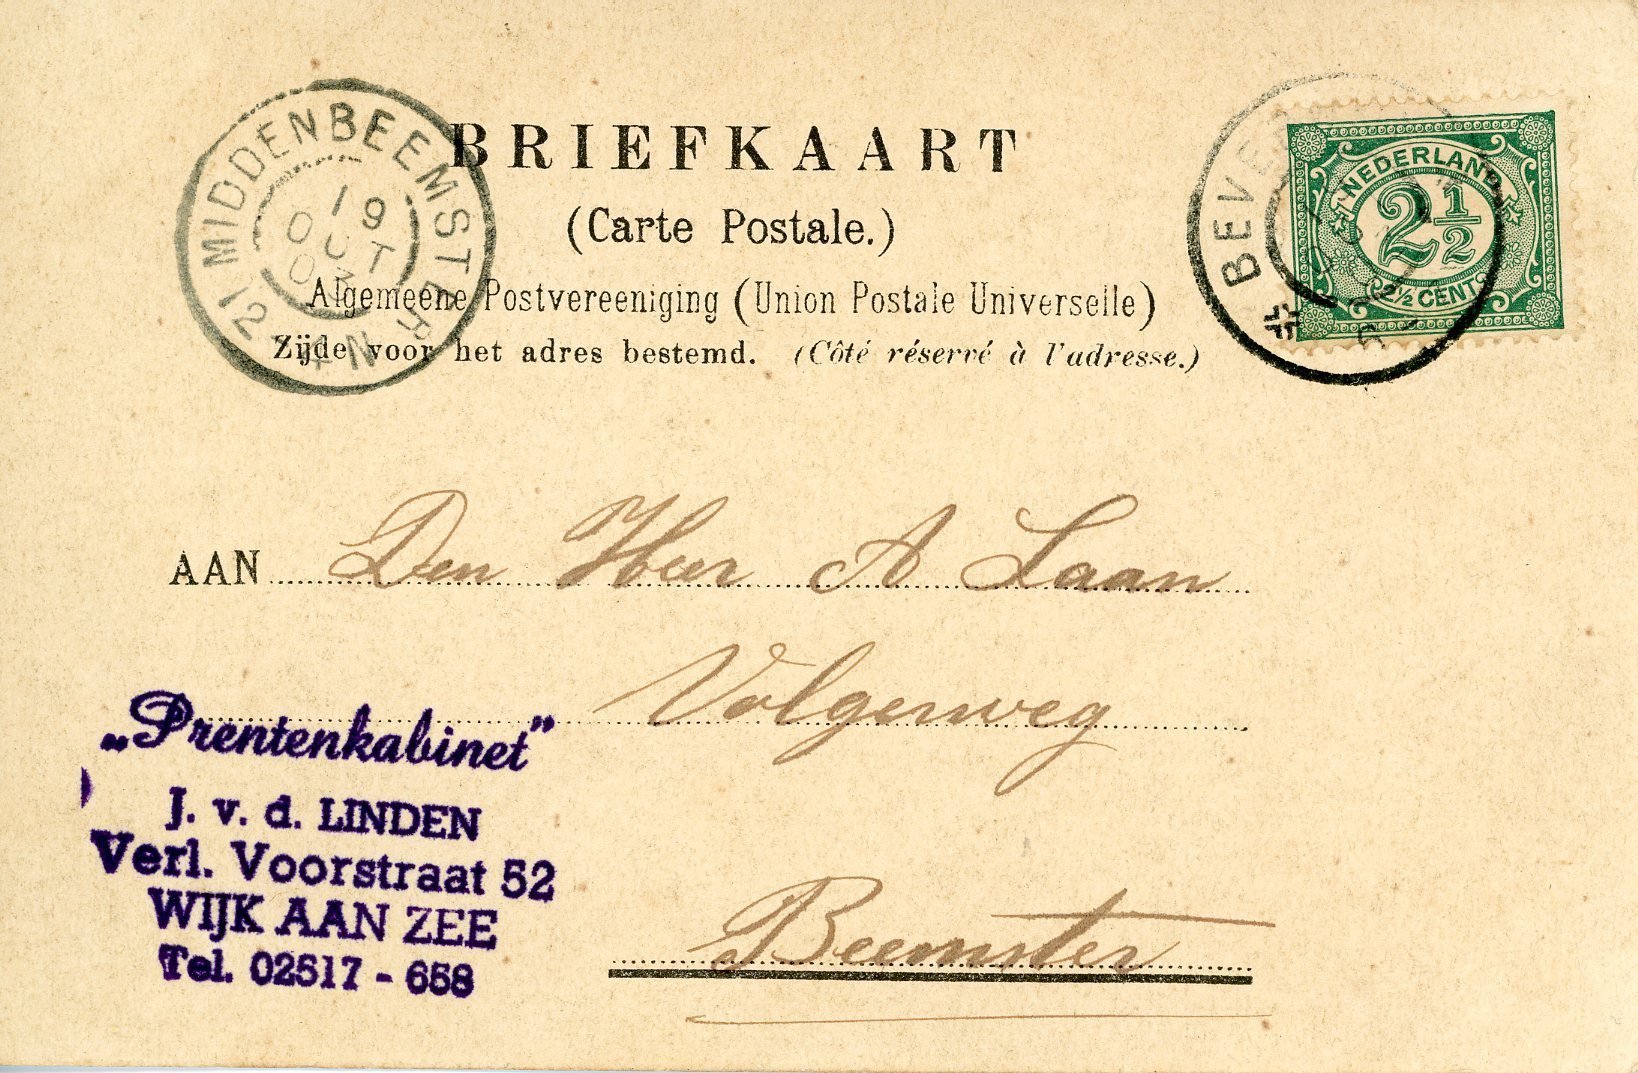 BRIEFKAART
(Carte Postale.)
Algemeene Postvereeniging (Union Postale Universelle)
Zijde voor het adres bestemd. (Côté réservé à l'adresse.)
MIDDENBEEMSTER
19
OCT
03
12
NEDERLAND
2½
2½ CENTS
AAN Den Heer A Laan
Volgerweg
Beemster
„Prentenkabinet”
J. v. d. LINDEN
Verl. Voorstraat 52
WIJK AAN ZEE
Tel. 02517 - 658